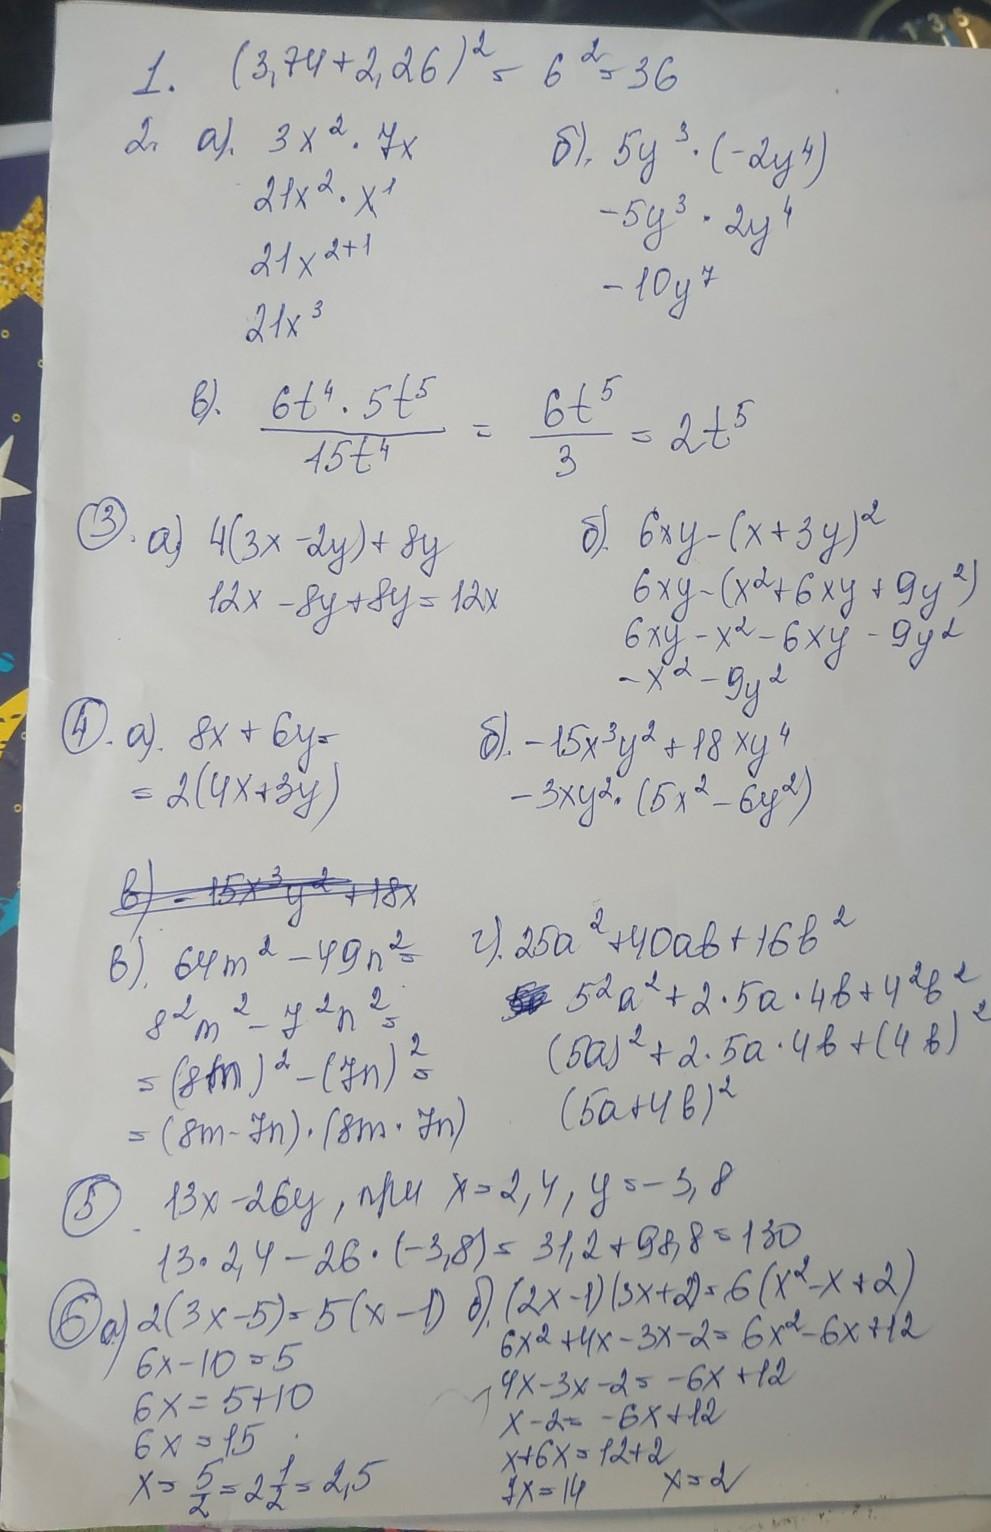 1. (3,74+2,26)² = 6² = 36
2. а). 3x² · 7x
21x² · x¹
21x²⁺¹
21x³
б). 5y³ · (-2y⁴)
-5y³ · 2y⁴
-10y⁷
в). 6t⁴ · 5t⁵ / 15t⁴ = 6t⁵ / 3 = 2t⁵
3. а) 4(3x-2y)+8y
12x-8y+8y=12x
б). 6xy-(x+3y)²
6xy-(x²+6xy+9y²)
6xy-x²-6xy-9y²
-x²-9y²
4. а). 8x+6y=
=2(4x+3y)
б). -15x³y²+18xy⁴
-3xy²·(5x²-6y²)
в) -15x³y²+18x
в). 64m²-49n²=
8²m²-7²n²=
=(8m)²-(7n)²=
=(8m-7n)·(8m·7n)
г). 25a²+40ab+16b²
5²a²+2·5a·4b+4²b²
(5a)²+2·5a·4b+(4b)²
(5a+4b)²
5 13x-26y, при x=2,4, y=-3,8
13·2,4-26·(-3,8)=31,2+98,8=130
6 а) 2(3x-5)=5(x-1)
6x-10=5
6x=5+10
6x=15
x=5/2=2 1/2=2,5
б). (2x-1)(3x+2)=6(x²-x+2)
6x²+4x-3x-2=6x²-6x+12
4x-3x-2=-6x+12
x-2=-6x+12
x+6x=12+2
7x=14 x=2